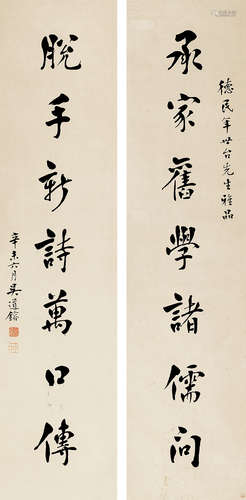 德民年世台先生雅品
承家舊學諸儒问
脫手新詩萬口傳
辛未六月吳道鎔